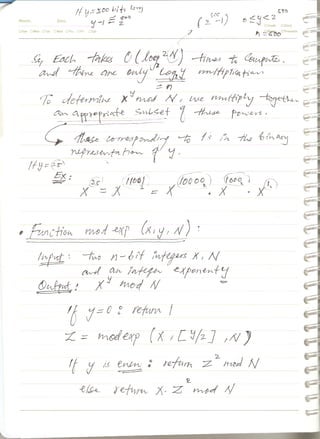 If y = 500 bits long
y - 1 =
0 ≤ y < 2^500
n = 500
So Each takes O(log² N) times to compute.
and there are only log y multiplications
= n
To determine x^y mod N, we multiply together
an appropriate subset of these powers.
those corresponding to 1s in the binary
representation of y.
If y = 25
Ex:
x^25 = x^11001₂ = x^10000₂ · x^1000₂ · x^1₂
• Function mod exp (x, y, N):
Input: two n-bit integers x, N
and an integer exponent y
Output: x^y mod N
if y = 0: return 1
Z = modexp (x, ⌊y/2⌋, N)
If y is even: return Z² mod N
else return x · Z² mod N